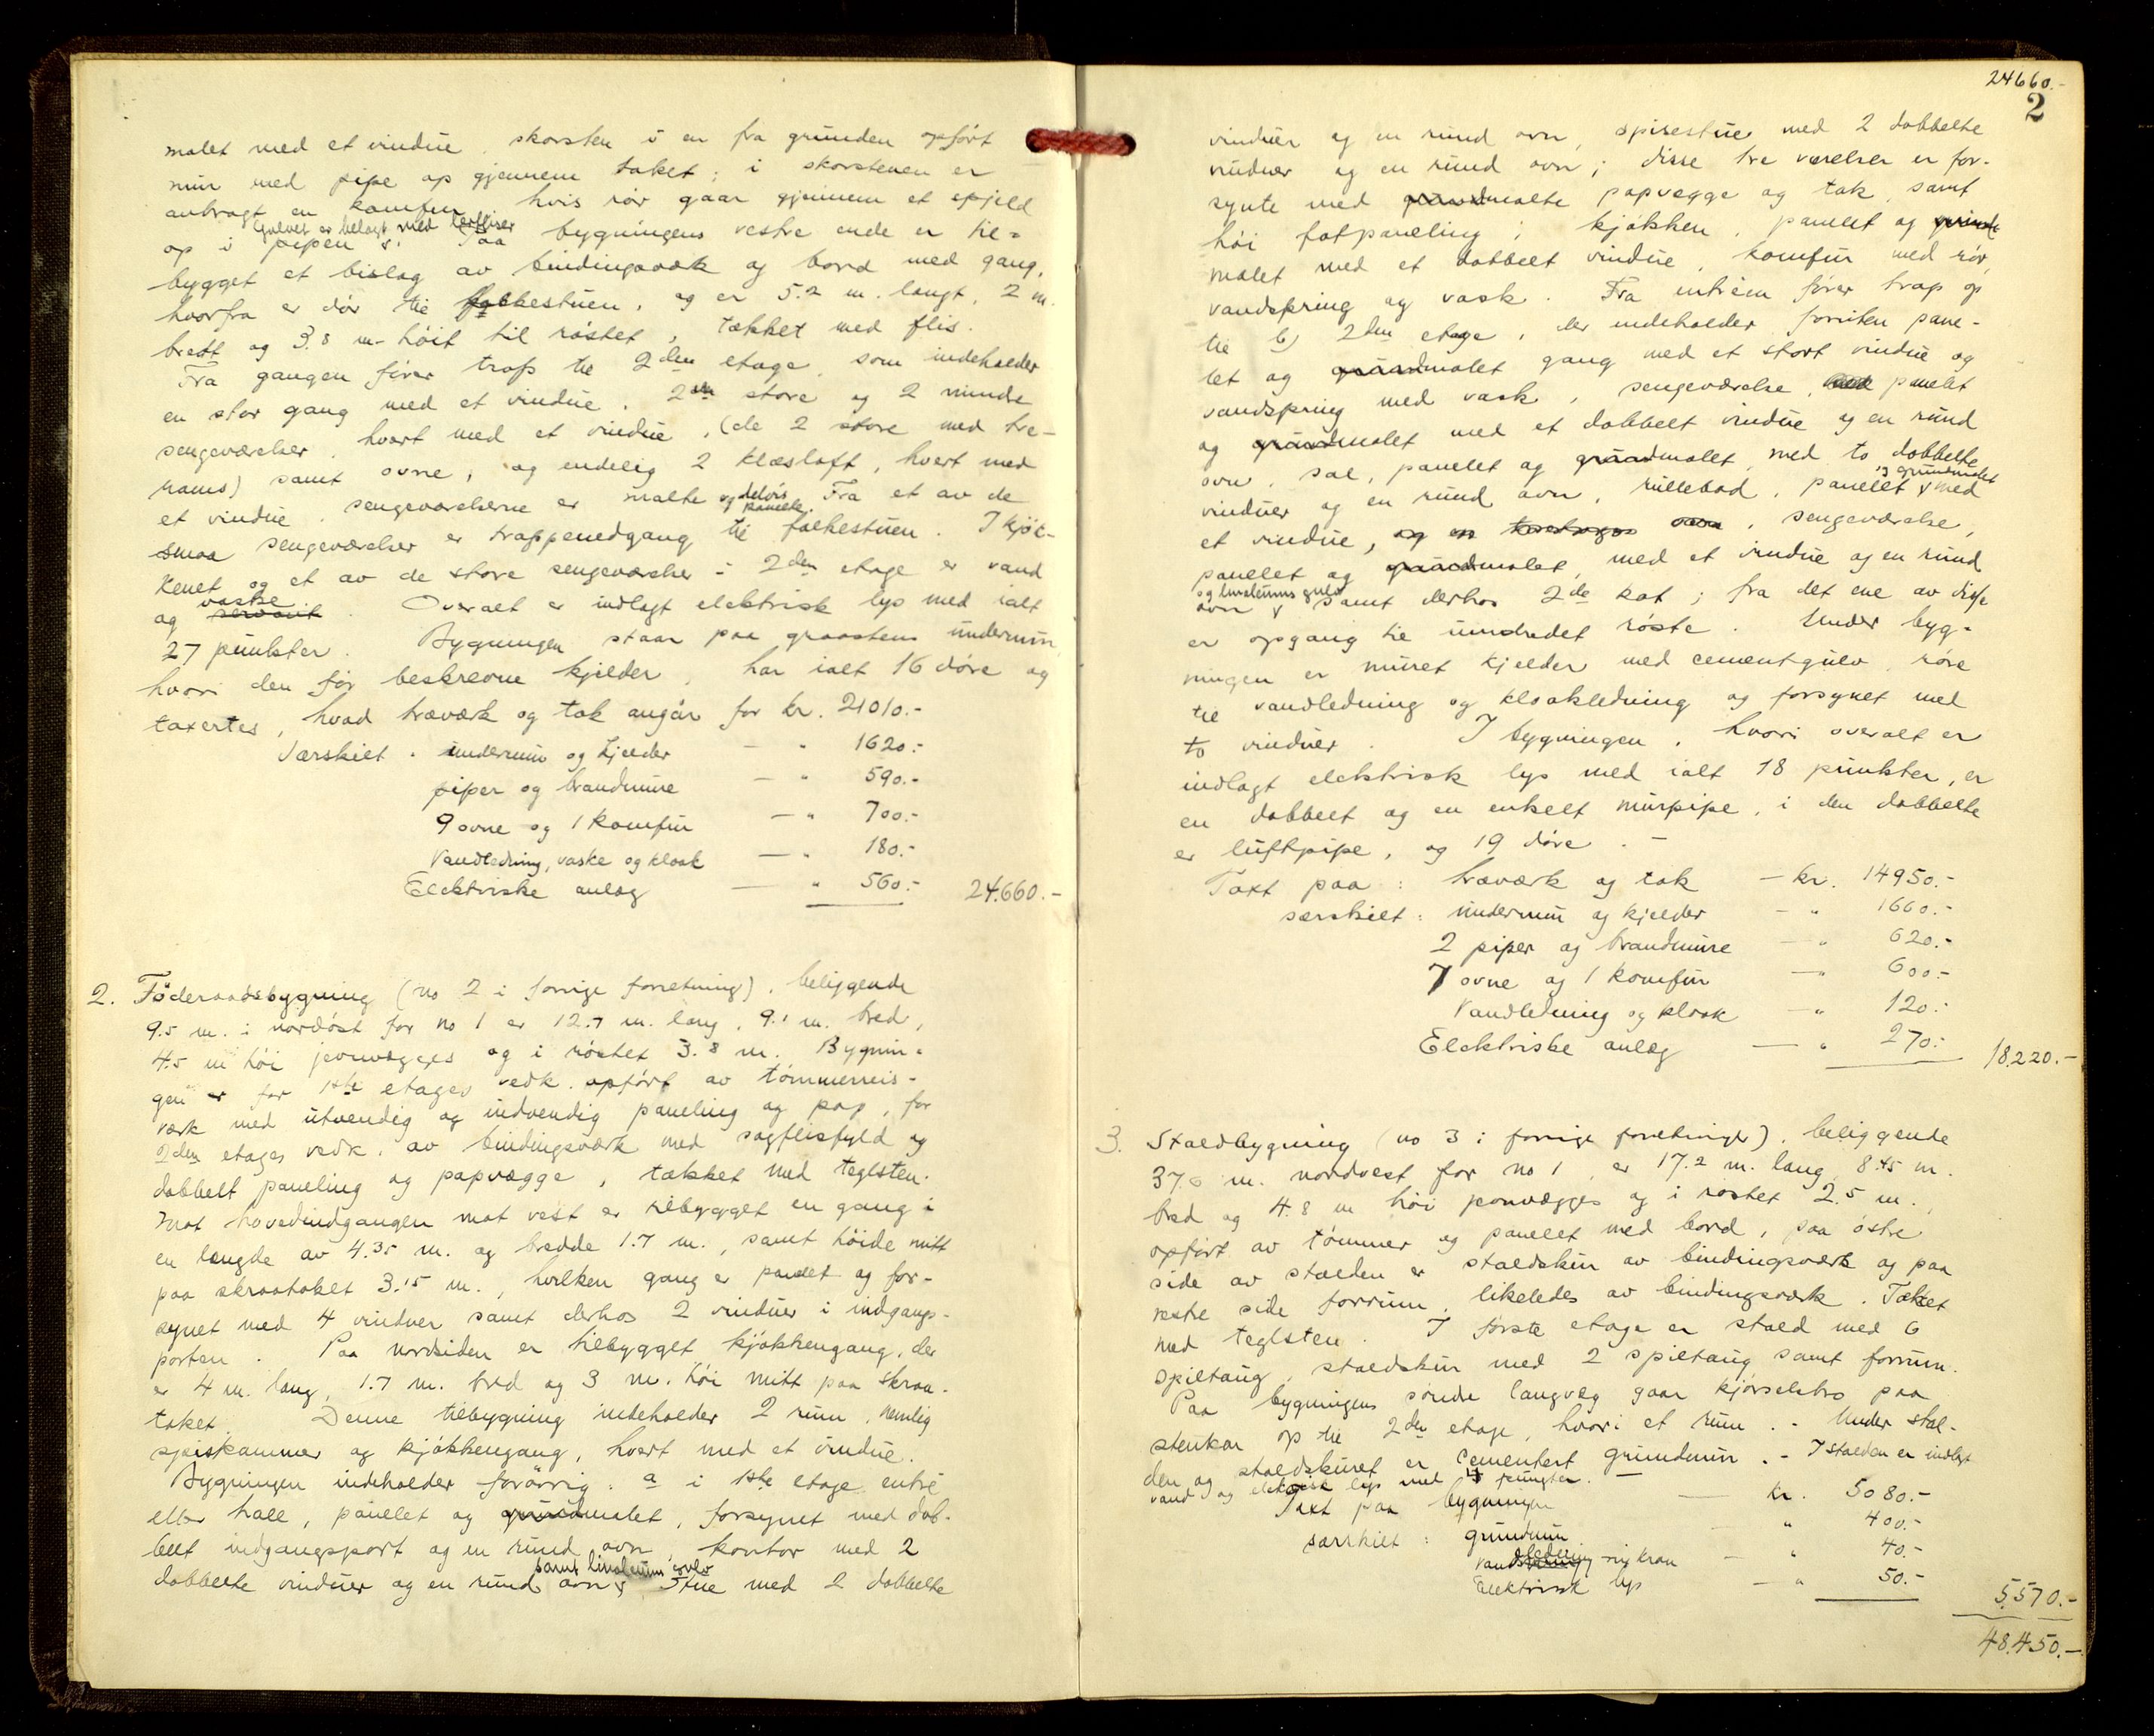 malet med et vindue, skorsten i en fra grunden opført
mur med pipe op gjennem taket; i skorstenen er
anbragt en komfur, hvis rør gaar gjennem et spjeld
Gulvet er belagt med terffiser
op i pipen. Paa bygningens vestre ende er til-
bygget et bislag av bindingsverk og bord med gang,
hvorfra er dør til folkestuen, og er 5.2 m. langt, 2 m.
bredt og 3.8 m. høit til røstet, tækket med flis.
Fra gangen fører trap til 2den etage, som indeholder
en stor gang med et vindue, 2 store og 2 mindre
sengeværelser, hvert med et vindue, (de 2 store med tre-
rams) samt ovne, og endelig 2 klæsloft, hvert med
et vindue, sengeværelserne er malte og delvis panelte. Fra et av de
smaa sengeværelser er trappenedgang til folkestuen. I kjøk-
kenet og et av de store sengeværelser i 2den etage er vand
og servant vaske. Overalt er indlagt elektrisk lys med ialt
27 punkter. Bygningen staar paa graastens undermur
hvori den før beskrevne kjelder, har ialt 16 døre og
taxertes, hvad træværk og tak angår for kr. 21010.-
Særskilt: undermur og kjelder — " 1620.-
piper og brandmure — " 590.-
9 ovne og 1 komfur — " 700.-
Vandledning, vaske og kloak — " 180.-
Elektriske anlæg — " 560.- 24.660.-
2. Føderaadsbygning (no 2 i forrige forretning), beliggende
9.5 m. i nordøst for no 1 er 12.7 m. lang, 9.1 m. bred,
4.5 m høi jevnvægges og i røstet 3.8 m. Bygnin-
gen er for 1ste etages vedk. opført av tømmerreis-
værk med utvendig og indvendig paneling og pap, for
2den etages vedk. av bindingsværk med sagflisfyld og
dobbelt paneling og papvægge, tækket med teglsten.
Mot hovedindgangen mot vest er tilbygget en gang i
en længde av 4.35 m. og bredde 1.7 m., samt høide mitt
paa skraataket 3.15 m., hvilken gang er panelet og for-
synet med 4 vinduer samt derhos 2 vinduer i indgangs-
porten. Paa nordsiden er tilbygget kjøkkengang, der
er 4 m. lang, 1.7 m. bred og 3 m. høi mitt paa skraa-
taket. Denne tilbygning indeholder 2 rum, nemlig
spiskammer og kjøkkengang, hvert med et vindue.
Bygningen indeholder forøvrig: a i 1ste etage entré
eller hall, panelet og grundmalet, forsynet med dob-
belt indgangsport og en rund ovn, kontor med 2
samt linoleum gulv
dobbelte vinduer og en rund ovn, Stue med 2 dobbelte
24660.-
2
vinduer og en rund ovn, spisestue med 2 dobbelte
vinduer og en rund ovn; disse tre værelser er for-
synte med grundmalte papvægge og tak, samt
høi fotpaneling; kjøkken, panelet og grund-
malet med et dobbelt vindue, komfur med rør,
vandspring og vask. Fra entréen fører trap op
til b) 2den etage, der indeholder foruten pane-
let og grundmalet gang med et stort vindue og
vandspring med vask, sengeværelse, panelet
og grundmalet med et dobbelt vindue og en rund
ovn, sal, panelet og grundmalet med to dobbelte
vinduer og en rund ovn, rullebod, panelet og grundmalet med
et vindue, og en ovn, sengeværelse,
panelet og grundmalet, med et vindue og en rund
og linoleums gulv
ovn samt derhos 2de kot; fra det ene av disse
er opgang til uindredet røste. Under byg-
ningen er muret kjelder med cementgulv, røre
til vandledning og kloakledning og forsynet med
to vinduer. I bygningen, hvori overalt er
indlagt elektrisk lys med ialt 18 punkter, er
en dobbelt og en enkelt murpipe, i den dobbelte
er luftpipe, og 19 døre. —
Taxt paa: træværk og tak — kr. 14950.-
særskilt: undermur og kjelder — " 1660.-
2 piper og brandmure — " 620.-
7 ovne og 1 komfur — " 600.-
Vandledning og kloak — " 120.-
Elektriske anlæg — " 270.- 18.220.-
3. Staldbygning (no 3 i forrige forretning), beliggende
37.6 m. nordvest for no 1, er 17.2 m. lang, 8.45 m.
bred og 4.8 m høi jevnvægges og i røstet 2.5 m.,
opført av tømmer og panelet med bord, paa østre
side av stalden er staldskur av bindingsværk og paa
vestre side forrum, likeledes av bindingsværk. Tækket
med teglsten. I første etage er stald med 6
spiltaug, staldskur med 2 spiltaug samt forrum.
Paa bygningens søndre langvæg gaar kjørselsbro paa
stenkar op til 2den etage, hvori et rum. - Under stal-
den og staldskuret er cementert grundmur. - I stalden er indlagt
vand og elektrisk lys med 4 pungter. —
Taxt paa bygningen — kr. 5080.-
særskilt: grundmur " 400.-
Vandledning og kran — " 40.-
Elektrisk lys — " 50.-
5.570.-
48.450.-